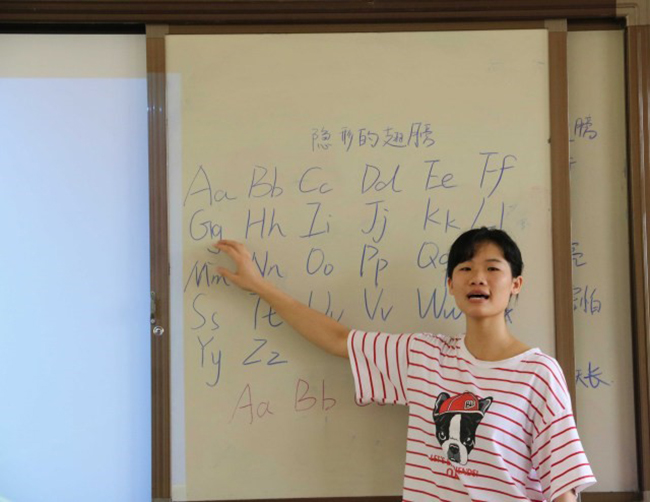 隐形的翅膀
Aa Bb Cc Dd Ee Ff
Gg Hh Ii Jj Kk Ll
Mm Nn Oo Pp
Ss Tt Uu Vv Ww
Yy Zz
Aa Bb
膀
怕
天长